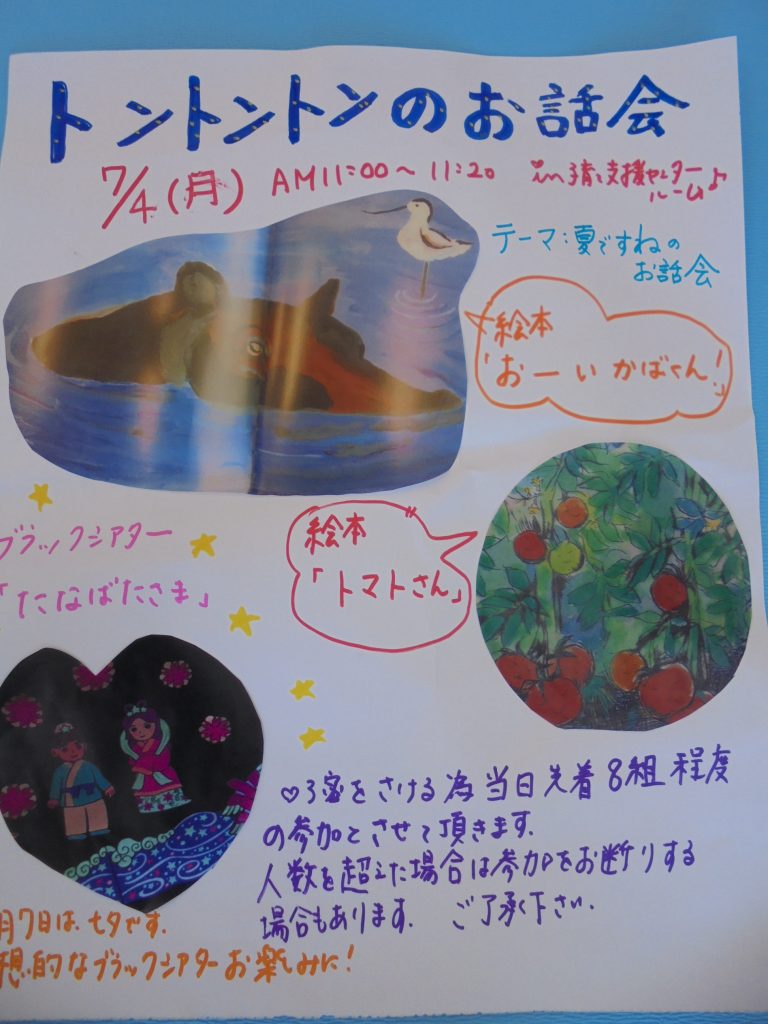 トントントンのお話会
7/4(月) AM11:00〜11:20 in 子育て支援センター
ルーム♪
テーマ:夏ですねの
お話会
絵本
「おーいかばくん!」
絵本
「トマトさん」
ブラックシアター
「たなばたさま」
♡3密をさける為当日先着8組程度
の参加とさせて頂きます。
人数を超えた場合は参加をお断りする
場合もあります。 ご了承下さい。
月7日は、七夕です。
想的なブラックシアターお楽しみに!